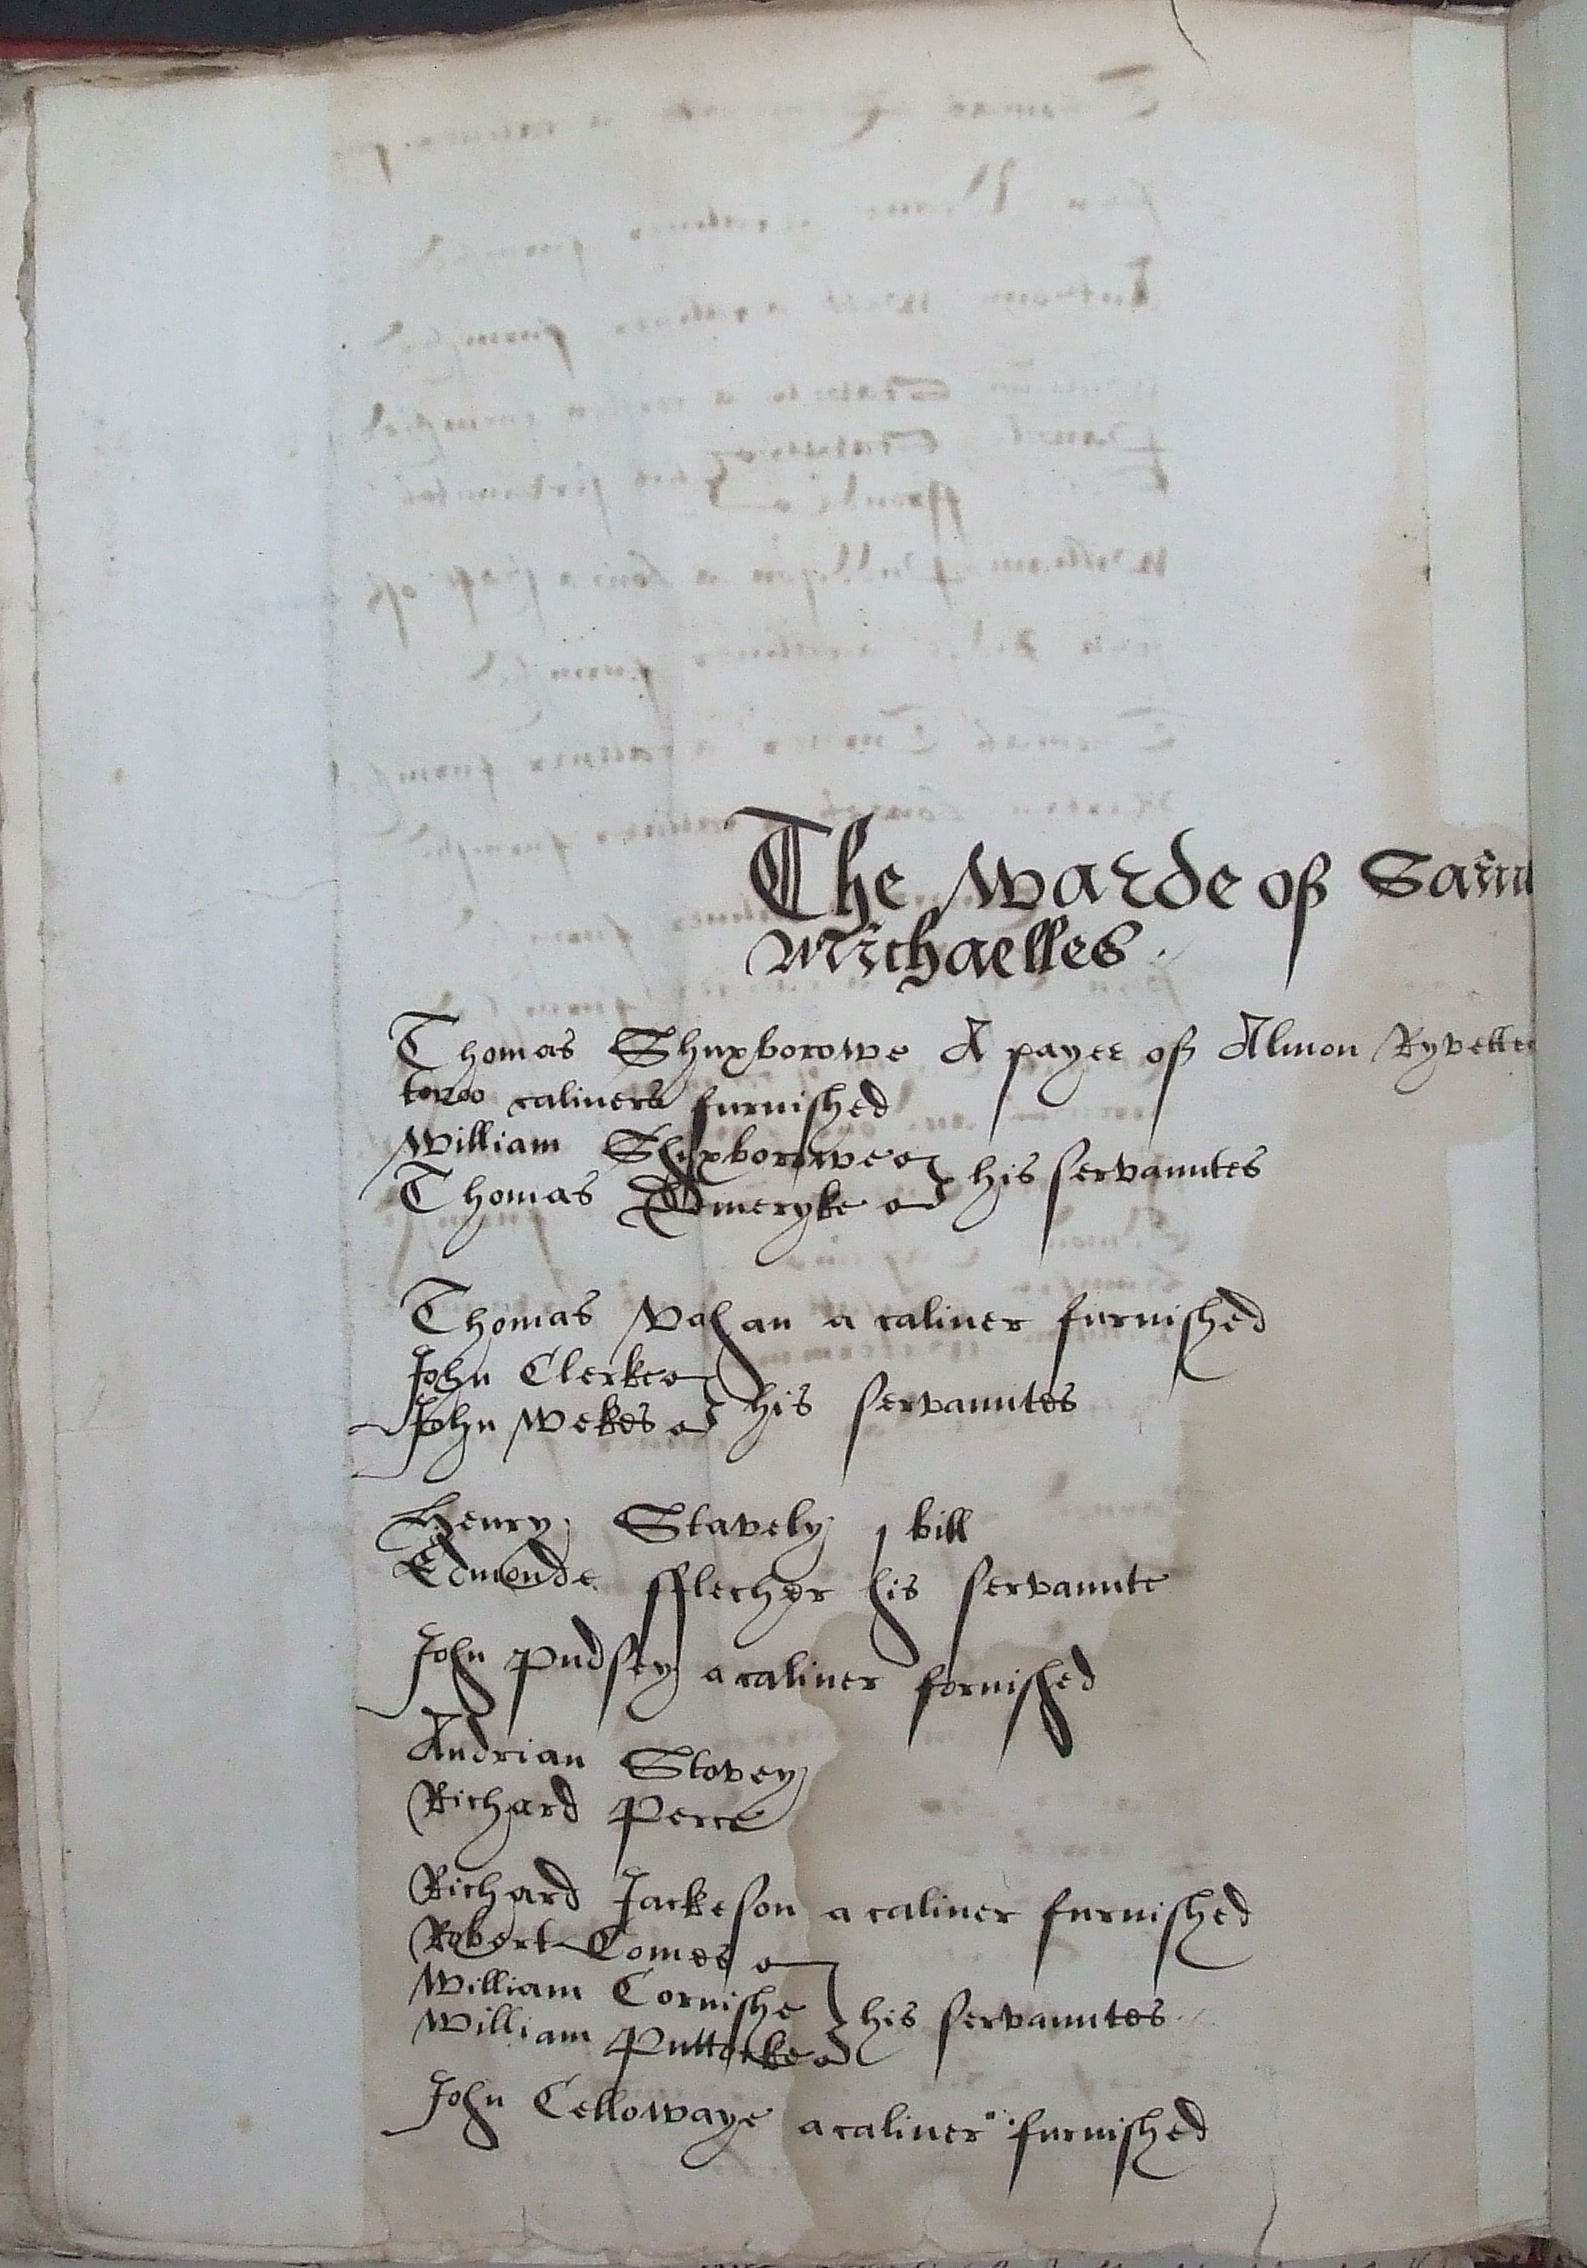 The warde of Saint
Michaelles
Thomas Shuxborowe A payer of Almon Ryvettes
towo calivers furnished
William Shuxborowe
Thomas Emeryke } his servanntes
Thomas Vahan a caliver furnished
John Clerke
John Wekes } his servanntes
Henry Stavely 1 bill
Edmonde fflecher his servannte
John Pudsey a caliver fornished
Andrian Stovey
Richard Perce
Richard Jackeson a caliver furnished
Robert Comes
William Cornishe } his servanntes
William Puttocke
John Cellowaye a caliver furnished